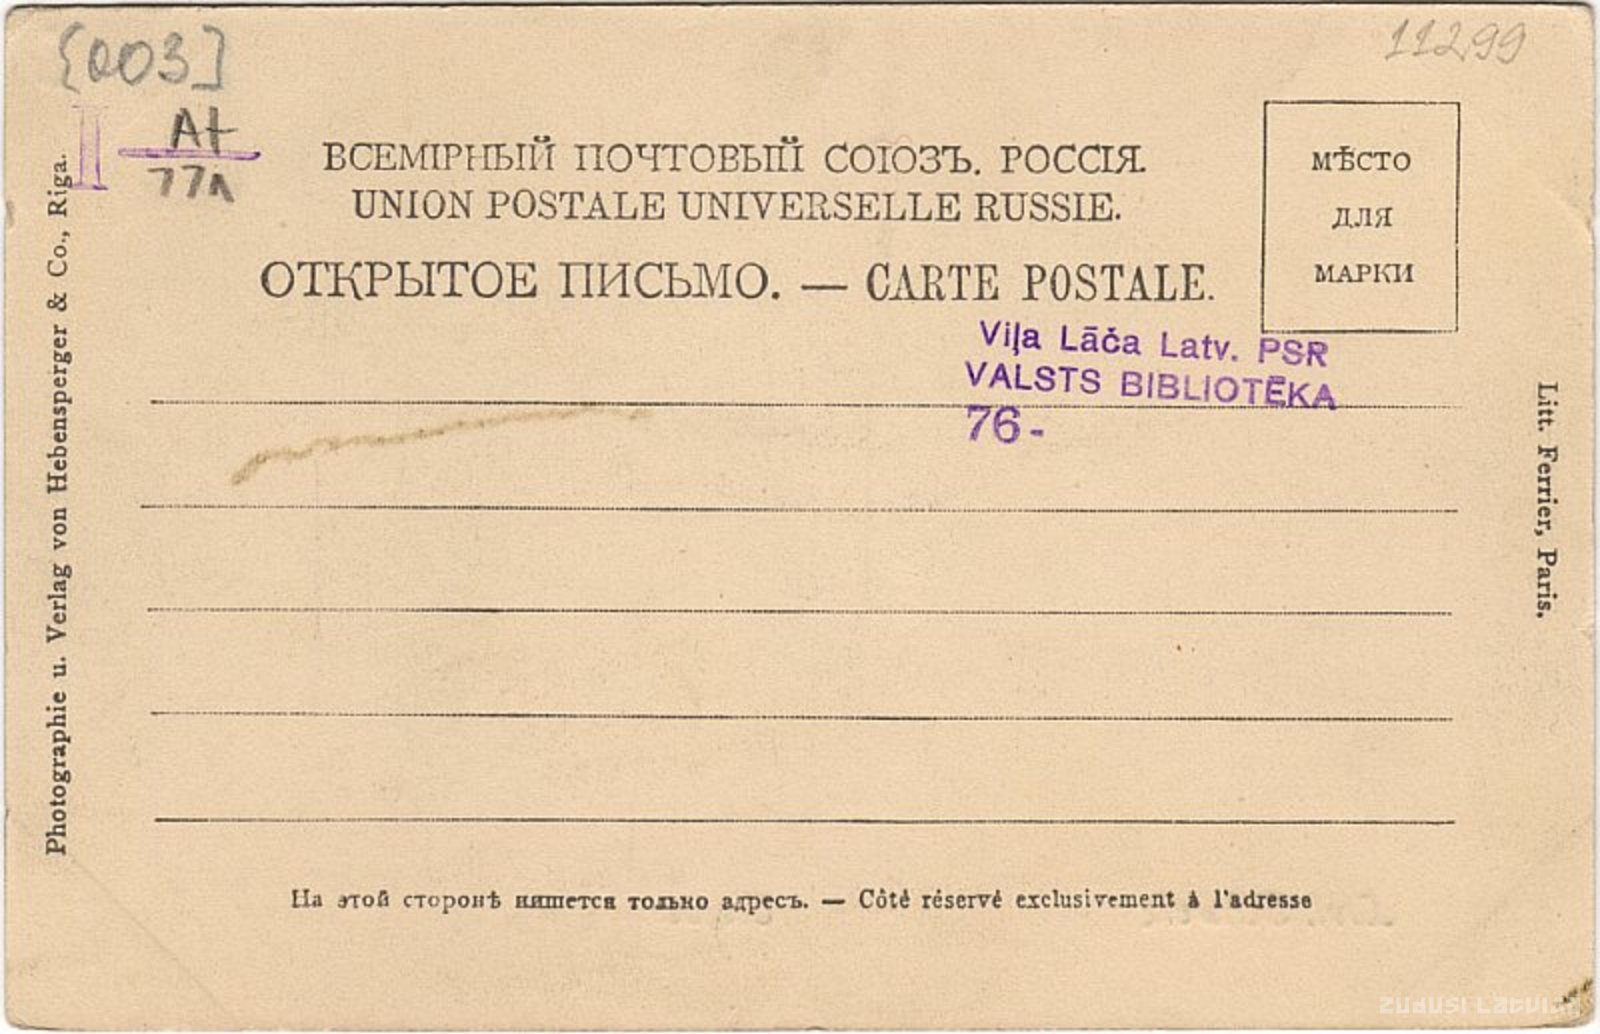 {003]
11299
II At
77л
ВСЕМІРНЫЙ ПОЧТОВЫЙ СОЮЗЪ. РОССІЯ.
UNION POSTALE UNIVERSELLE RUSSIE.
ОТКРЫТОЕ ПИСЬМО. — CARTE POSTALE.
МѢСТО
ДЛЯ
МАРКИ
Viļa Lāča Latv. PSR
VALSTS BIBLIOTĒKA
76-
Photographie u. Verlag von Hebensperger & Co., Riga.
Litt. Ferrier, Paris.
На этой сторонѣ пишется только адресъ. — Côté réservé exclusivement à l'adresse
zudusi Latvija